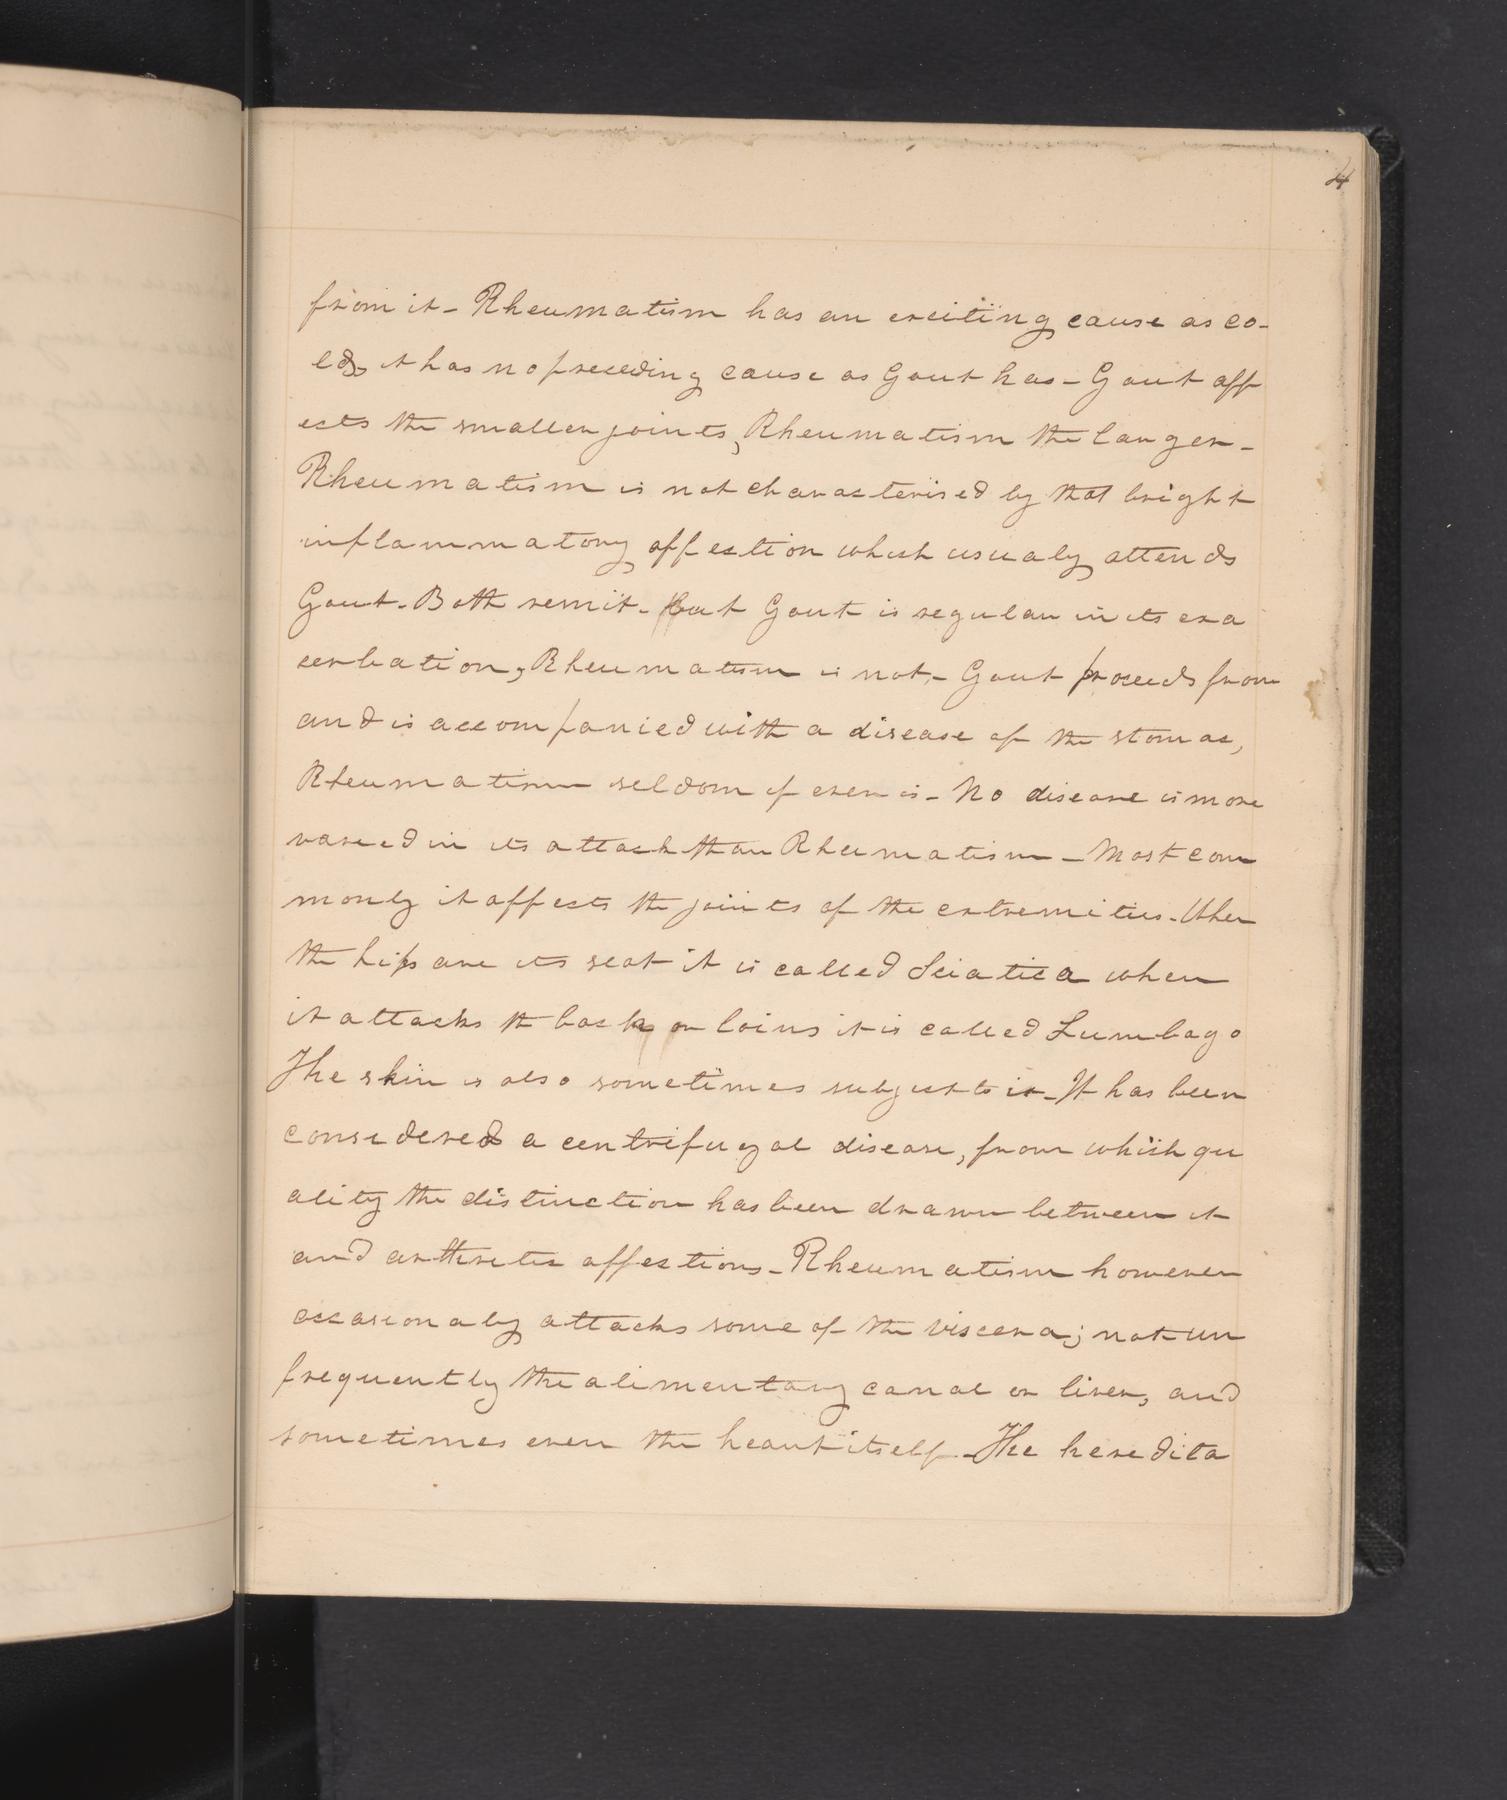 4
from it - Rheumatism has an exciting cause as co-
ld, it has no preceeding cause as Gout has - Gout aff
ects the smaller joints, Rheumatism the larger -
Rheumatism is not characterised by that bright
inflammatory affection which usualy attends
Gout - Both remit - but Gout is regular in its exa
cerbation, Rheumatism is not, - Gout proceeds from
and is accompanied with a disease of the stomac,
Rheumatism seldom if ever is - No disease is more
varied in its attack than Rheumatism - Most com
monly it affects the joints of the extremities - When
the hips are its seat it is called Sciatica when
it attacks th back or loins it is called Lumbago
The skin is also sometimes subject to it - It has been
considered a centrifugal disease, from which qu
ality the distinction has been drawn between it
and arthritic affections - Rheumatism however
occasionaly attacks some of the viscera; not un
frequently the alimentary canal or liver, and
sometimes even the heart itself - The heredita